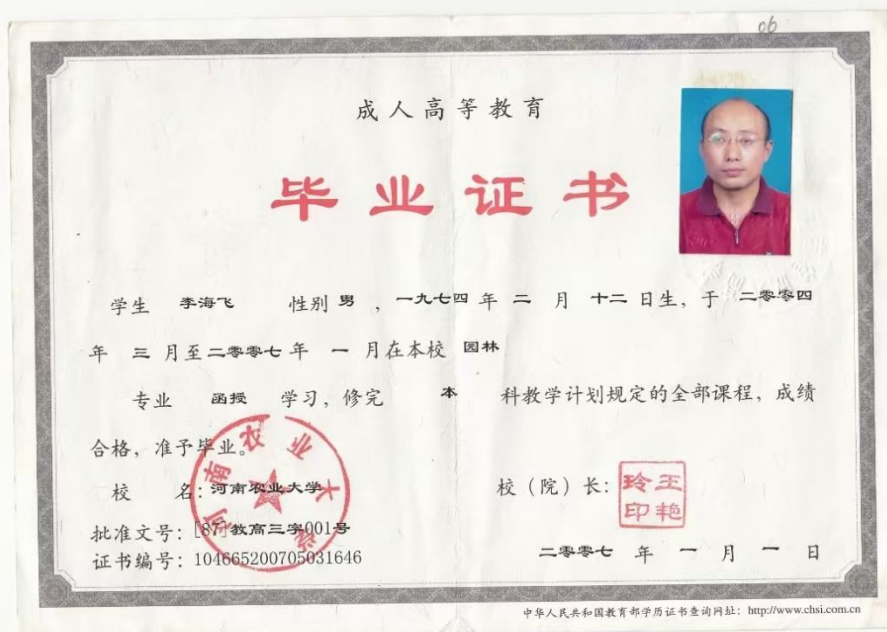 06
成人高等教育
毕业证书
学生 李海飞 性别 男 ，一九七四 年 二 月 十二 日生，于 二零零四
年 三 月至 二零零七 年 一 月在本校 园林
专业 函授 学习，修完 本 科教学计划规定的全部课程，成绩
合格，准予毕业。
校 名：河南农业大学
校（院）长：
王艳玲印
河南农业大学
批准文号：[87]教高三字001号
证书编号：104665200705031646
二零零七 年 一 月 一 日
中华人民共和国教育部学历证书查询网址：http://www.chsi.com.cn